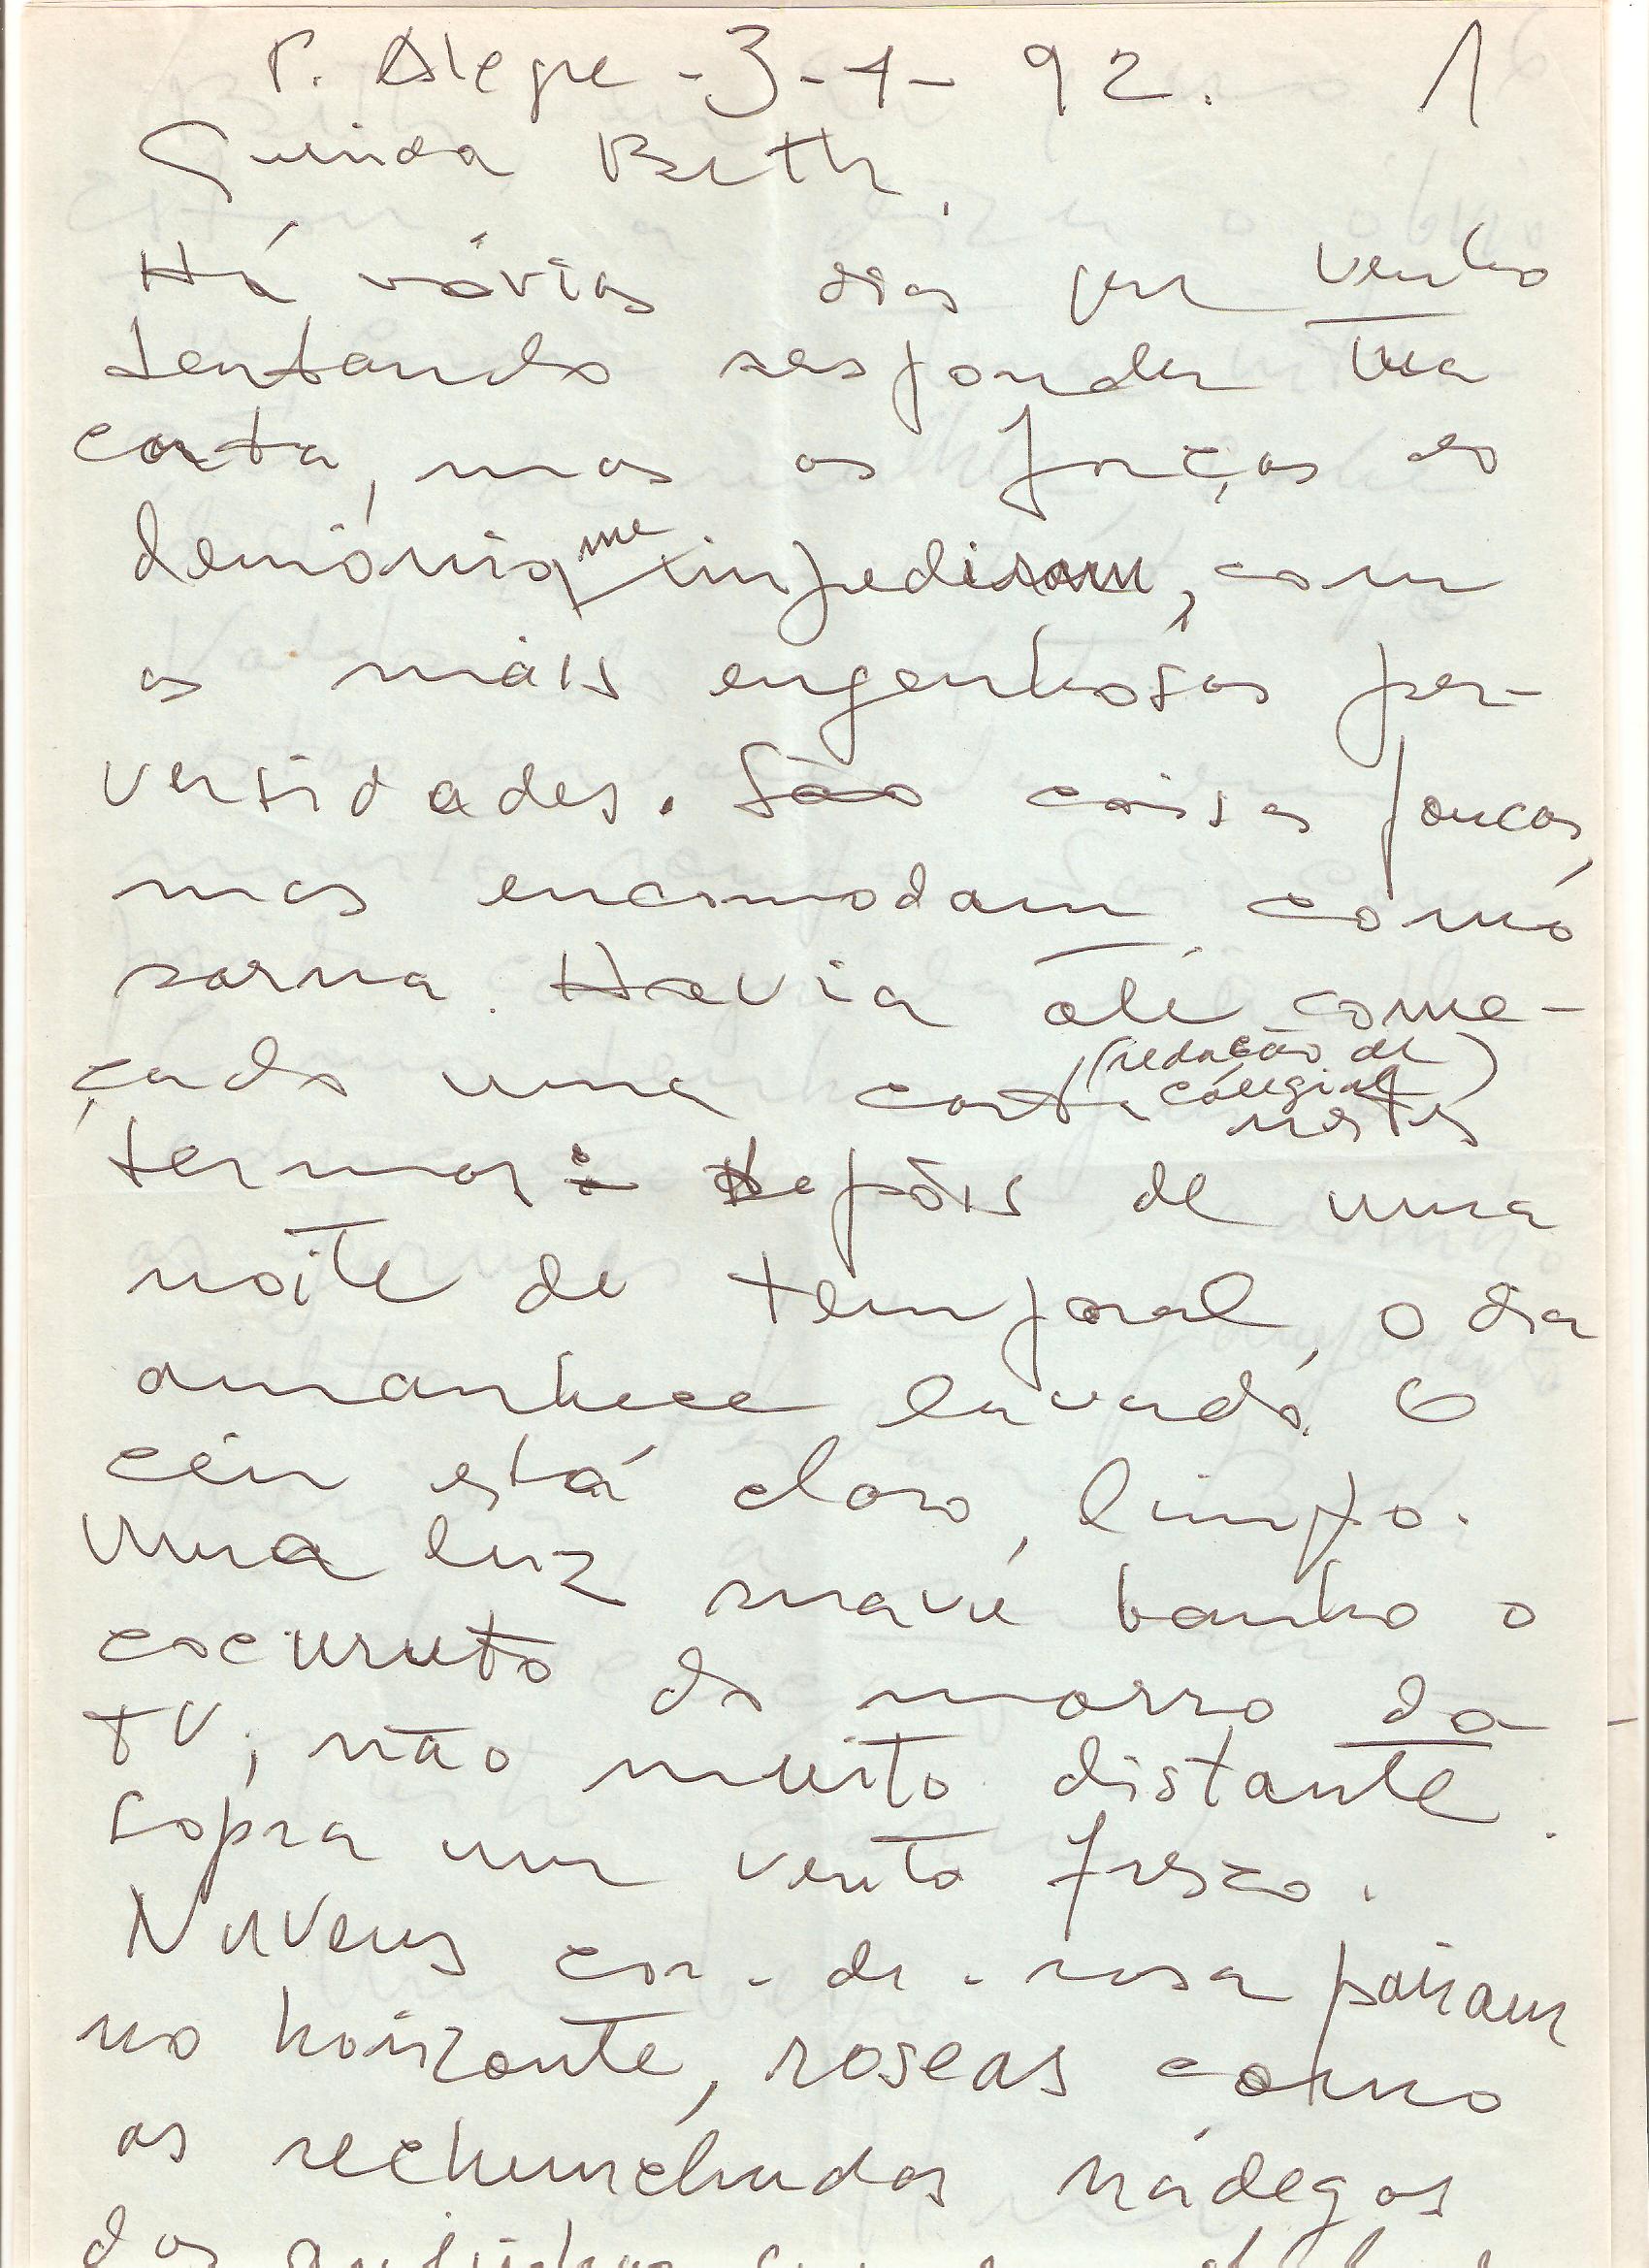 P. Alegre - 3 - 4 - 92. 1
Querida Beth,
Há vários dias que venho
tentando responder tua
carta, mas as forças do
demônio me impediram, com
as mais engenhosas per-
versidades. São coisas poucas,
mas encomodam como
sarna. Havia até come-
çado uma carta (redação de
colegial) nestes
termos: depois de uma
noite de temporal, o dia
amanhece lavado. O
céu está claro, limpo.
Uma luz suave banha o
cocuruto do morro da
TV, não muito distante.
Sopra um vento fresco.
Nuvens cor-de-rosa pairam
no horizonte, roseas como
as rechunchudas nádegas
dos anjinhos